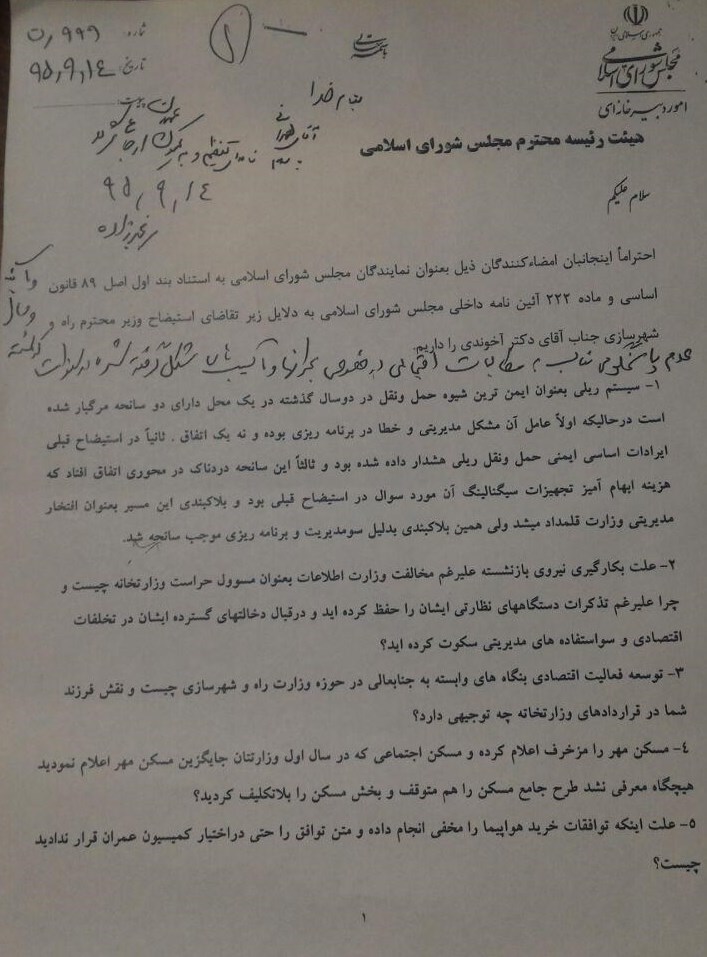 جمهوری اسلامی ایران
مجلس شورای اسلامی
امور دبیرخانه‌ای
شماره: ۹۹۹/ن
تاریخ: ۹۵,۹,۱۴
پیوست:
۱
بنام خدا
آقای
۹۵,۹,۱۴
هیئت رئیسه محترم مجلس شورای اسلامی
سلام علیکم
احتراماً اینجانبان امضاءکنندگان ذیل بعنوان نمایندگان مجلس شورای اسلامی به استناد بند اول اصل ۸۹ قانون
اساسی و ماده ۲۲۲ آئین نامه داخلی مجلس شورای اسلامی به دلایل زیر تقاضای استیضاح وزیر محترم راه و
شهرسازی جناب آقای دکتر آخوندی را داریم.
عدم پاسخگویی مناسب به مطالبات در خصوص بحرانها و آسیب های شکل گرفته
۱- سیستم ریلی بعنوان ایمن ترین شیوه حمل ونقل در دوسال گذشته در یک محل دارای دو سانحه مرگبار شده
است درحالیکه اولاً عامل آن مشکل مدیریتی و خطا در برنامه ریزی بوده و نه یک اتفاق . ثانیاً در استیضاح قبلی
ایرادات اساسی ایمنی حمل ونقل ریلی هشدار داده شده بود و ثالثاً این سانحه دردناک در محوری اتفاق افتاد که
هزینه ابهام آمیز تجهیزات سیگنالینگ آن مورد سوال در استیضاح قبلی بود و بلاکبندی این مسیر بعنوان افتخار
مدیریتی وزارت قلمداد میشد ولی همین بلاکبندی بدلیل سومدیریت و برنامه ریزی موجب سانحه شد.
۲- علت بکارگیری نیروی بازنشسته علیرغم مخالفت وزارت اطلاعات بعنوان مسوول حراست وزارتخانه چیست و
چرا علیرغم تذکرات دستگاههای نظارتی ایشان را حفظ کرده اید و درقبال دخالتهای گسترده ایشان در تخلفات
اقتصادی و سواستفاده های مدیریتی سکوت کرده اید؟
۳- توسعه فعالیت اقتصادی بنگاه های وابسته به جنابعالی در حوزه وزارت راه و شهرسازی چیست و نقش فرزند
شما در قراردادهای وزارتخاته چه توجیهی دارد؟
۴- مسکن مهر را مزخرف اعلام کرده و مسکن اجتماعی که در سال اول وزارتتان جایگزین مسکن مهر اعلام نمودید
هیچگاه معرفی نشد طرح جامع مسکن را هم متوقف و بخش مسکن را بلاتکلیف کردید؟
۵- علت اینکه توافقات خرید هواپیما را مخفی انجام داده و متن توافق را حتی دراختیار کمیسیون عمران قرار ندادید
چیست؟
۱